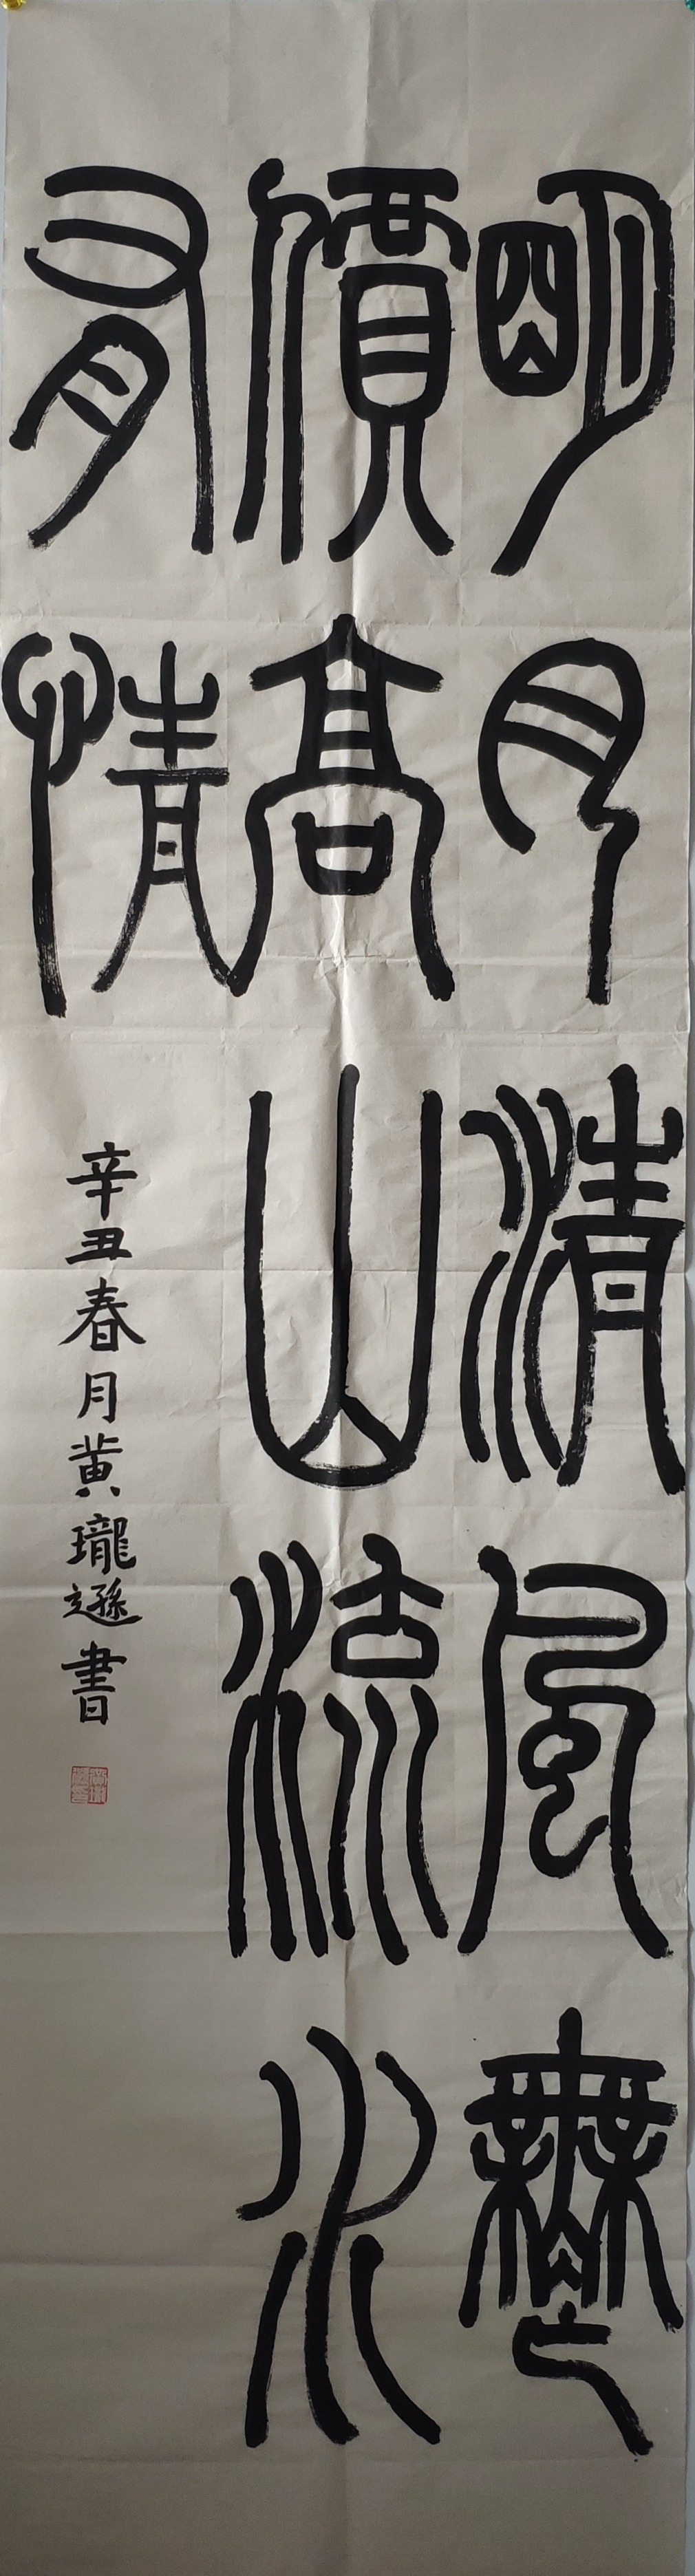 明月清風無
價高山流水
有情
辛丑春月黄瓏遜書